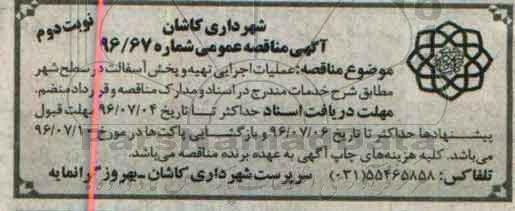 نوبت دوم
شهرداری کاشان
آگهی مناقصه عمومی شماره ۹۶/۶۷
موضوع مناقصه: عملیات اجرایی تهیه و پخش آسفالت در سطح شهر
مطابق شرح خدمات مندرج در اسناد و مدارک مناقصه و قرارداد منضم.
مهلت دریافت اسناد حداکثر تا تاریخ ۹۶/۰۷/۰۴ مهلت قبول
پیشنهادها حداکثر تا تاریخ ۹۶/۰۷/۰۶ و بازگشایی پاکت‌ها در مورخ ۹۶/۰۷/۱۰
می‌باشد. کلیه هزینه‌های چاپ آگهی به عهده برنده مناقصه می‌باشد.
تلفاکس: ۵۵۴۶۵۸۵۸(۰۳۱) سرپرست شهرداری کاشان - بهروز گرانمایه